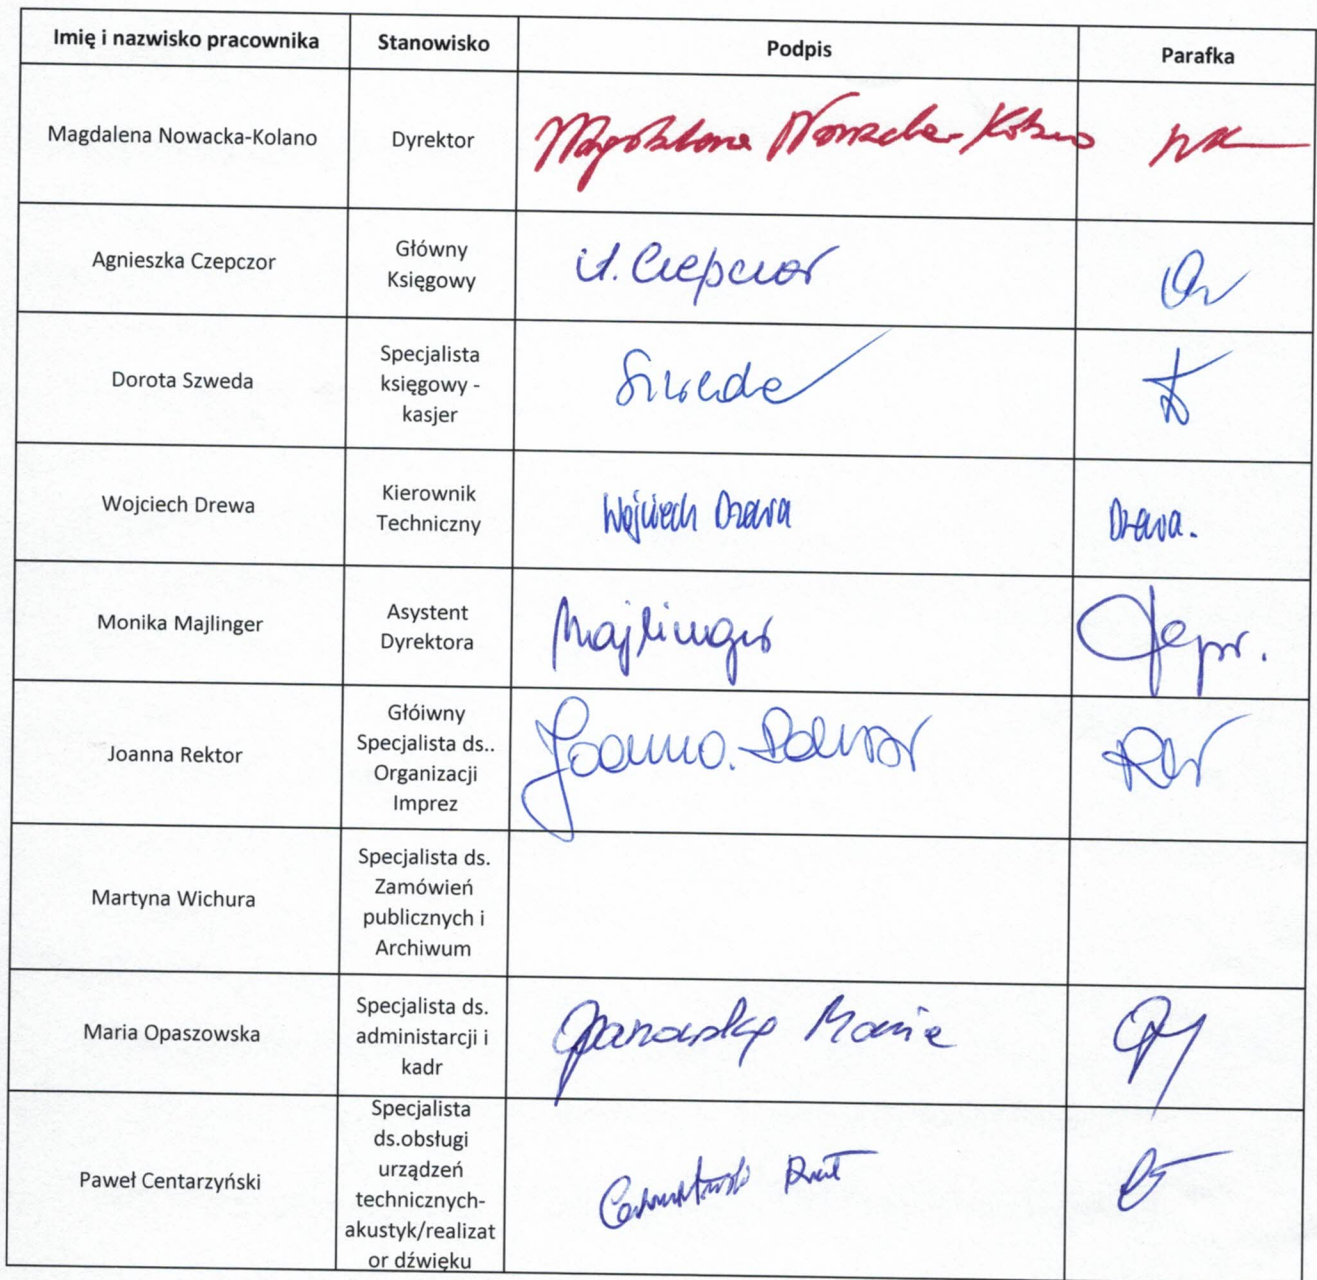 Imię i nazwisko pracownika Stanowisko Podpis Parafka
Magdalena Nowacka-Kolano Dyrektor Magdalena Nowacka-Kolano
Agnieszka Czepczor Główny
Księgowy A. Czepczor
Dorota Szweda Specjalista
księgowy -
kasjer Szweda
Wojciech Drewa Kierownik
Techniczny Wojciech Drewa Drewa.
Monika Majlinger Asystent
Dyrektora Majlinger
Joanna Rektor Głóiwny
Specjalista ds..
Organizacji
Imprez Joanna Rektor
Martyna Wichura Specjalista ds.
Zamówień
publicznych i
Archiwum
Maria Opaszowska Specjalista ds.
administarcji i
kadr Opaszowska Maria
Paweł Centarzyński Specjalista
ds.obsługi
urządzeń
technicznych-
akustyk/realizat
or dźwięku Centarzyński Paweł